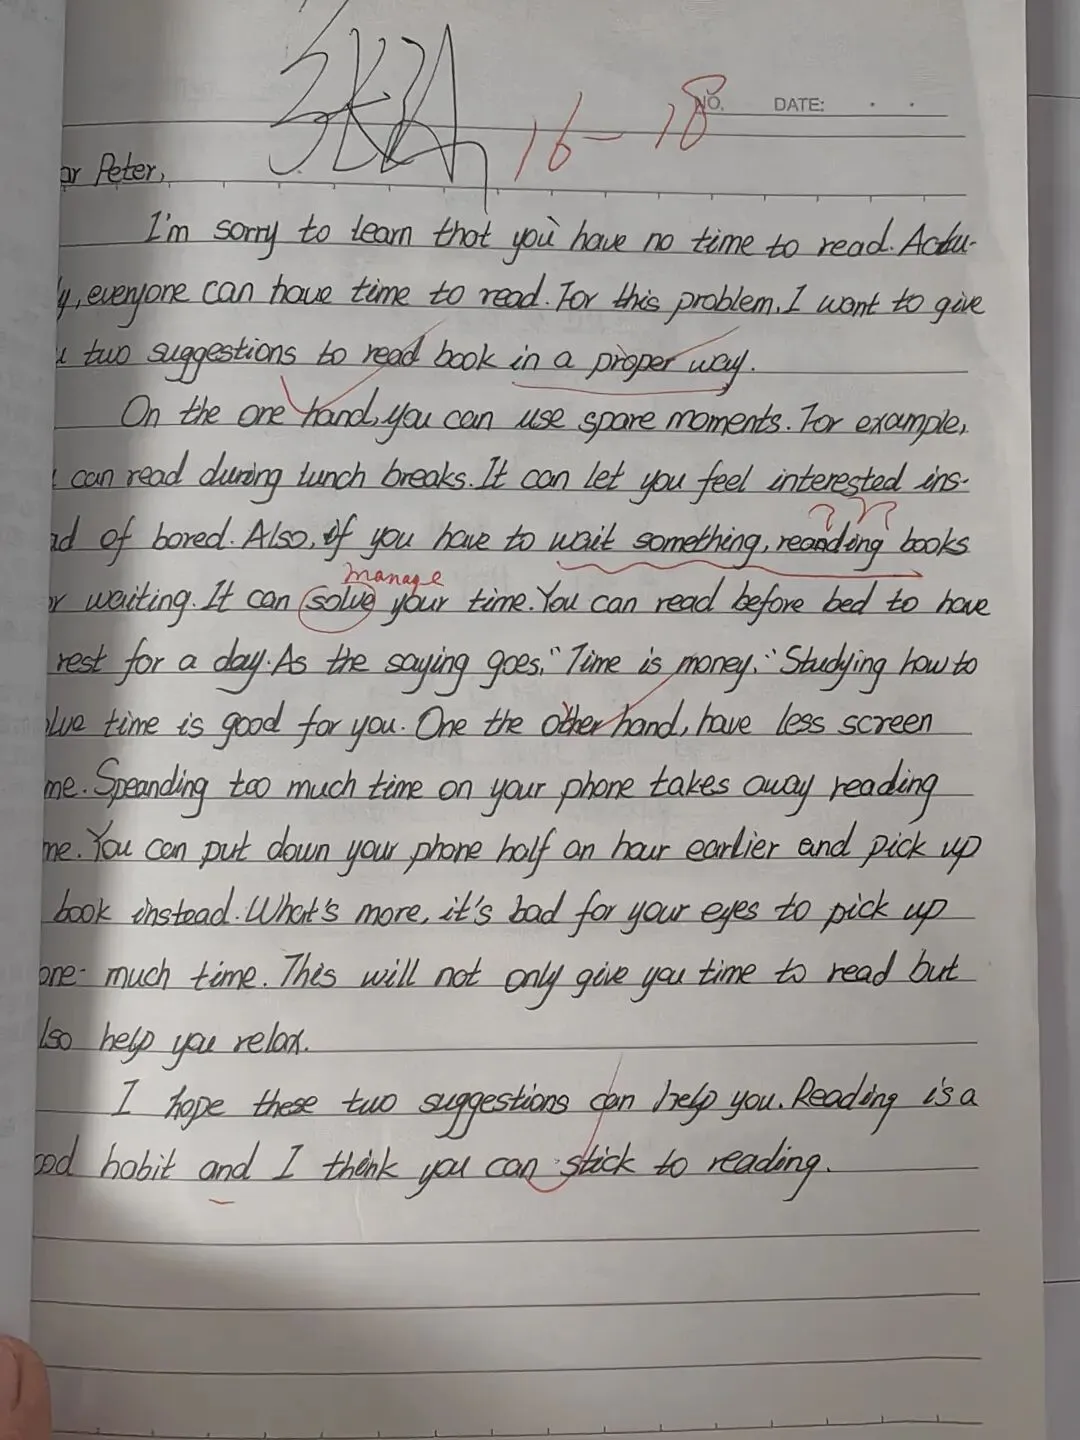 NO. DATE:
16-18
ar Peter,
I'm sorry to learn that you have no time to read. Actu-
ly, everyone can have time to read. For this problem, I want to give
u two suggestions to read book in a proper way.
On the one hand, you can use spare moments. For example,
can read during lunch breaks. It can let you feel interested ins-
ad of bored. Also, if you have to wait something, reanding books
or waiting. It can solve your time. You can read before bed to have
manage
rest for a day. As the saying goes, "Time is money." Studying how to
olve time is good for you. One the other hand, have less screen
me. Speanding too much time on your phone takes away reading
me. You can put down your phone half an hour earlier and pick up
book instead. What's more, it's bad for your eyes to pick up
one much time. This will not only give you time to read but
lso help you relax.
I hope these two suggestions can help you. Reading is a
ood habit and I think you can stick to reading.